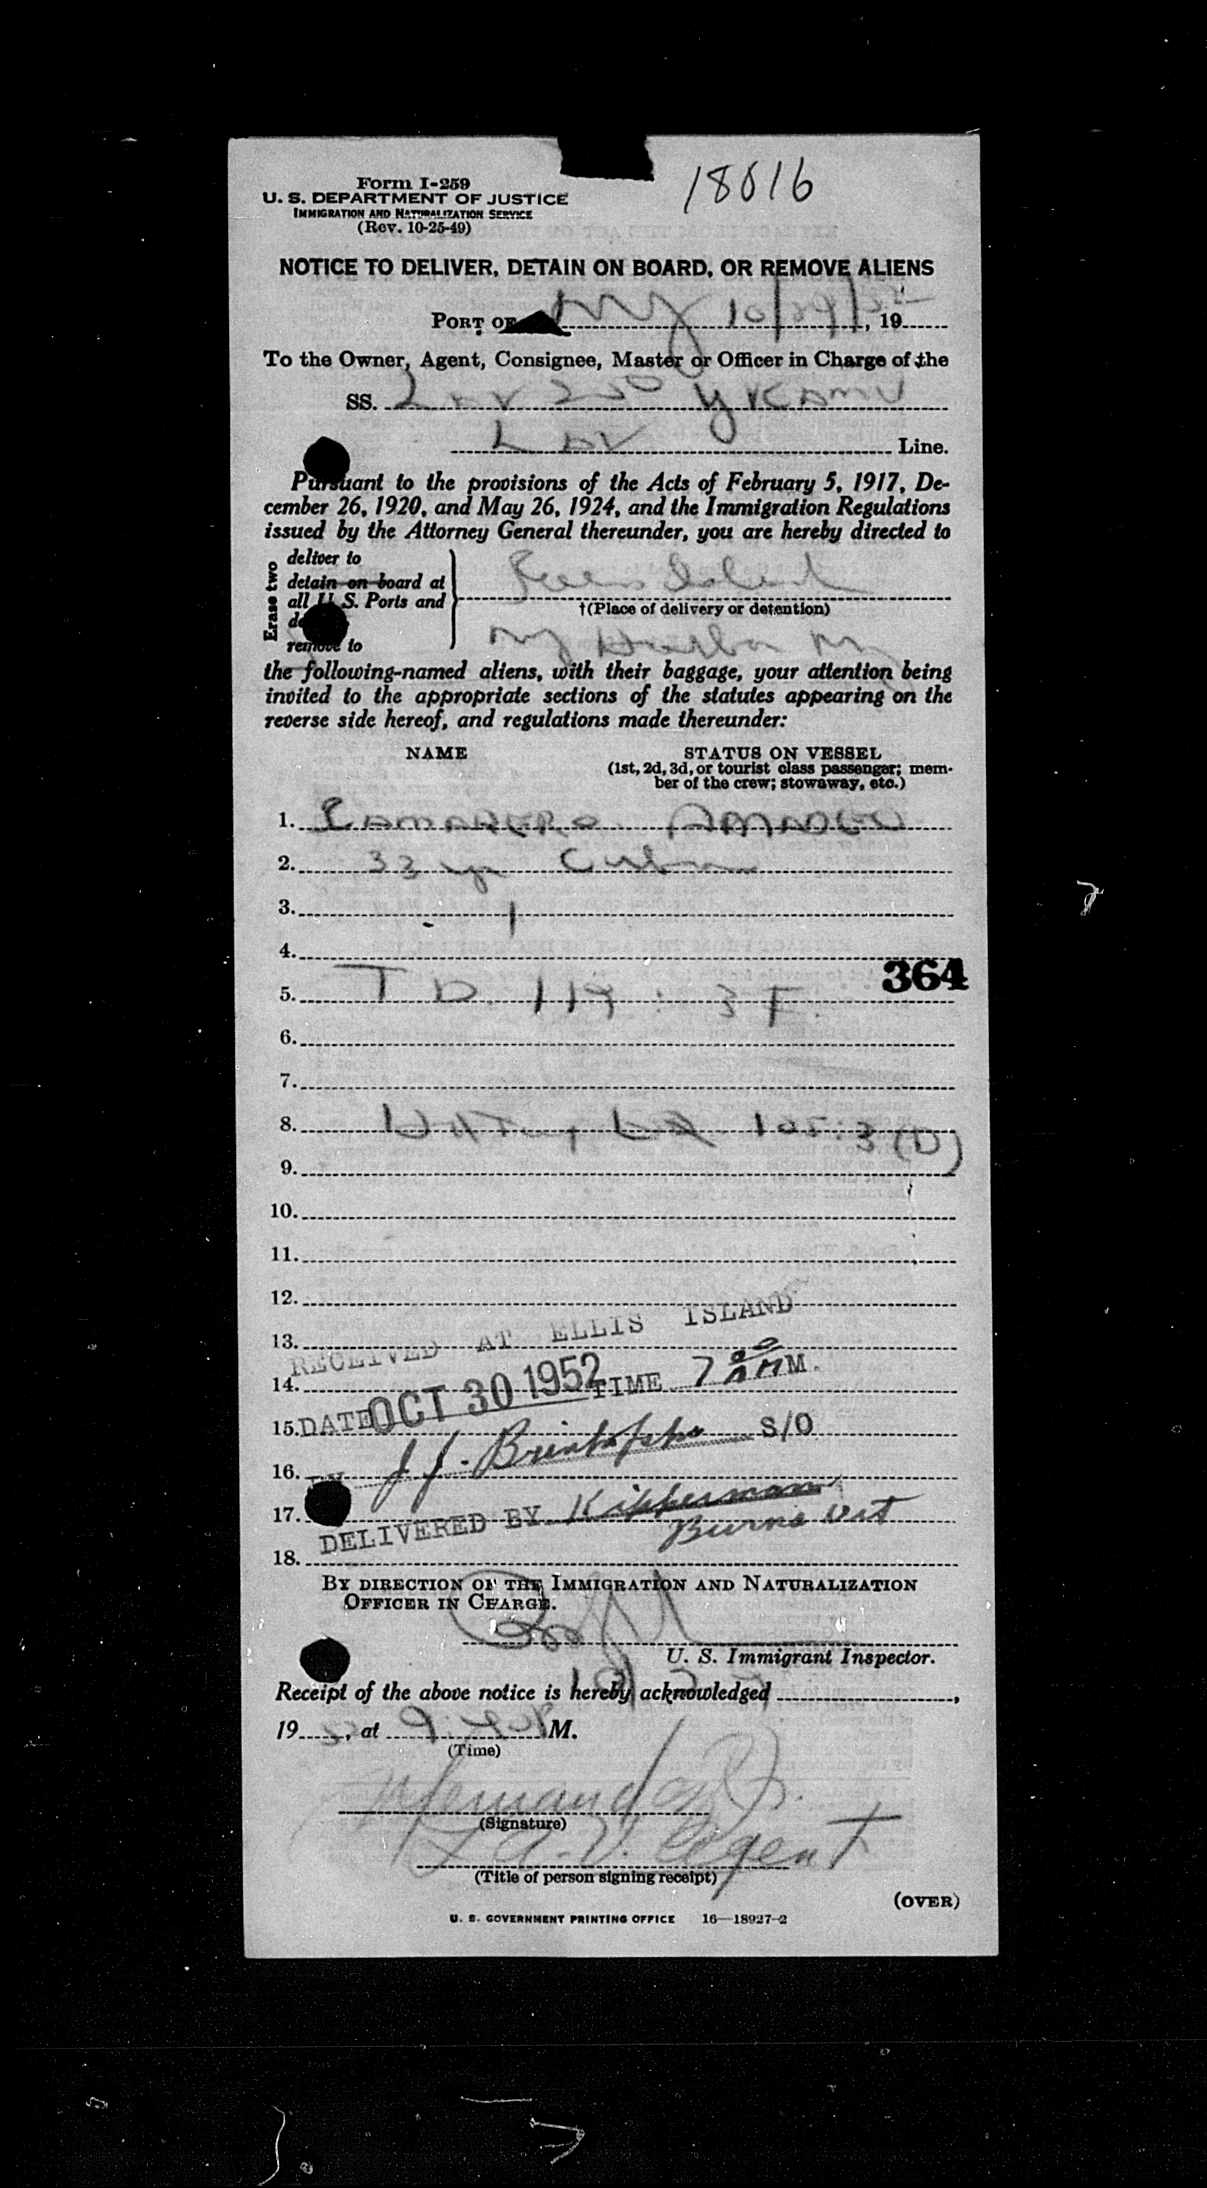 18016
Form I-259
U. S. DEPARTMENT OF JUSTICE
IMMIGRATION AND NATURALIZATION SERVICE
(Rev. 10-25-49)
NOTICE TO DELIVER, DETAIN ON BOARD, OR REMOVE ALIENS
PORT OF NY 10/29/52, 19
To the Owner, Agent, Consignee, Master or Officer in Charge of the
SS.
LAV Line.
Pursuant to the provisions of the Acts of February 5, 1917, De-
cember 26, 1920, and May 26, 1924, and the Immigration Regulations
issued by the Attorney General thereunder, you are hereby directed to
Erase two
deliver to
detain on board at
all U.S. Ports and
remove to
Ellis Island
†(Place of delivery or detention)
NY Harbor NY
the following-named aliens, with their baggage, your attention being
invited to the appropriate sections of the statutes appearing on the
reverse side hereof, and regulations made thereunder:
NAME STATUS ON VESSEL
(1st, 2d, 3d, or tourist class passenger; mem-
ber of the crew; stowaway, etc.)
1. Armando
2. 33 yr Cuban
3. 1
4.
364
5. T D. 114 : 3 I.
6.
7.
8. 107:3 (D)
9.
10.
11.
12.
13.
RECEIVED AT ELLIS ISLAND
14.
DATE OCT 30 1952 TIME 7 00 AM M.
15.
BY J. J. S/O
16.
17.
DELIVERED BY Kipperman
Burns Det
18.
BY DIRECTION OF THE IMMIGRATION AND NATURALIZATION
OFFICER IN CHARGE.
U. S. Immigrant Inspector.
Receipt of the above notice is hereby acknowledged ,
19 , at M.
(Time)
(Signature)
L A. V. Agent
(Title of person signing receipt)
(OVER)
U. S. GOVERNMENT PRINTING OFFICE 16—18927-2